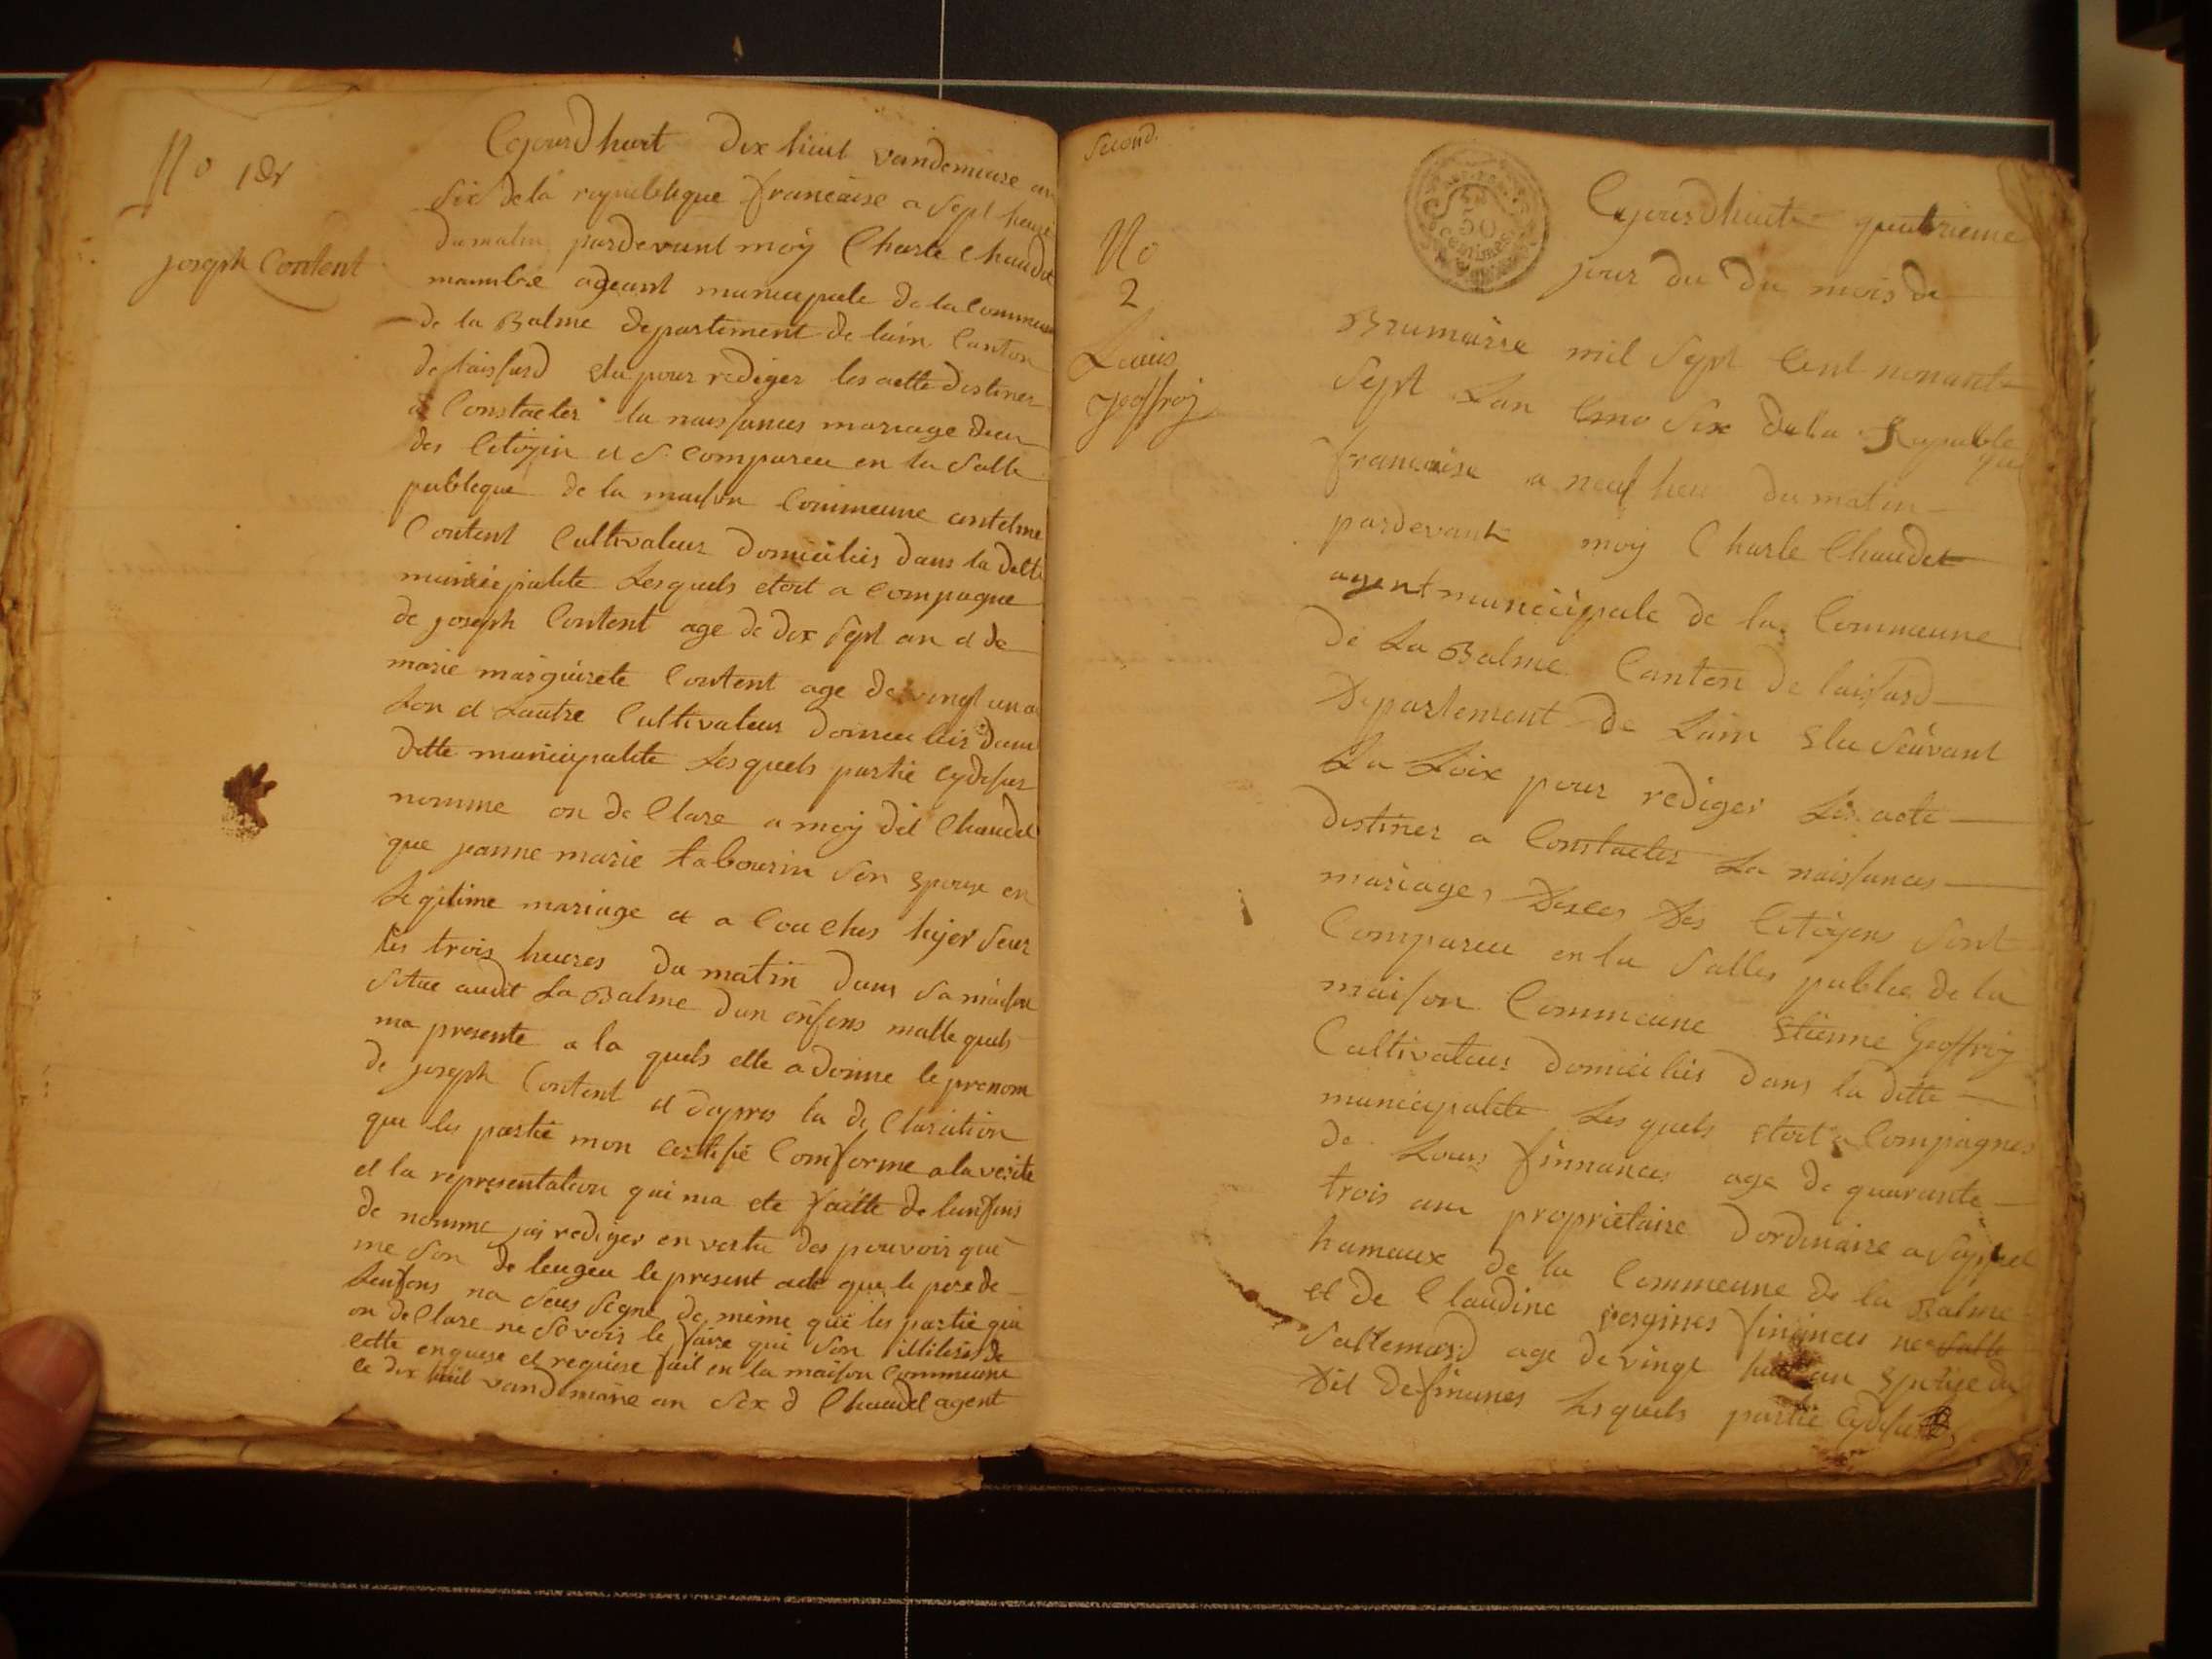 No 1er
joseph Content
Cejourdhuit dix huit vandemiaire an
six de la republique francaise a sept heure
du matin pardevant moÿ Charle Chaudet
mambre ageant municipale de la Commeune
de la Balme departement de lain Canton
de laissard elu pour rediger les actte destiner
a Constacter la naissances mariage
des Citoÿin et s compareu en la salle
publeque de la maison Commeune antelme
Content Cultivateur domicilies dans la dette
municipalite Lesquels etoit a Compagne
de joseph Content age de dix sept an et de
marie marguirete Content age de vingt un an
Lon et Lautre Cultivateur domicilies dans
dette municipalite Lesquels partie cydesus
nomme on de Clare a moÿ dit Chaudet
que jeanne marie tabourin son epouse en
Legitime mariage et a Couches hijer seur
les trois heures du matin dans sa maison
situe audit La Balme dun enfens malle quels
ma presente a la quels elle a donne le prenom
de joseph Content et dapres la de Claration
que les partie mon certifie Comforme a la verite
et la representation qui ma ete faitte de lenfens
de nomme jai rediger en vertu des pouvoir que
me son de leugeu le present acte que le pere de
Lenfens na seus signe de meime que les partie qui
on de Clare ne se voir le faire qui son illiteris de
cette enquise et requise fait en la maison Commeune
ce dix huit vandemaire an six d Chaudet agent
Second.
50
centimes
No
2
Louis
geoffroÿ
Cejourdhuit quatrieme
jour du du mois de
Brumaire mil sept Cent nonant
sept Lan six de la Republe
que
francaise a neuf heur du matin
pardevant moÿ Charle Chaudet
agent municipale de la Commeune
de La Balme Canton de laissard
Departement de Lain elu seuvant
La Loix pour rediger Les acte
destiner a Constacter La naissances
mariages Deces Des Citoÿens sont
Compareu en la salles publics de la
maison Commeune Etienne Geoffroÿ
Cultivateur domicilies dans la dette
municipalite Les quels etoit a Compagnes
de Louis finnances age de quarante
trois ans proprietaire dordinaire a
hameaux de la Commeune de la Balme
et de Claudine finances ne
Sallemard age de vingt huit an epouse du
Dit de finanes Les quels partie cydesus